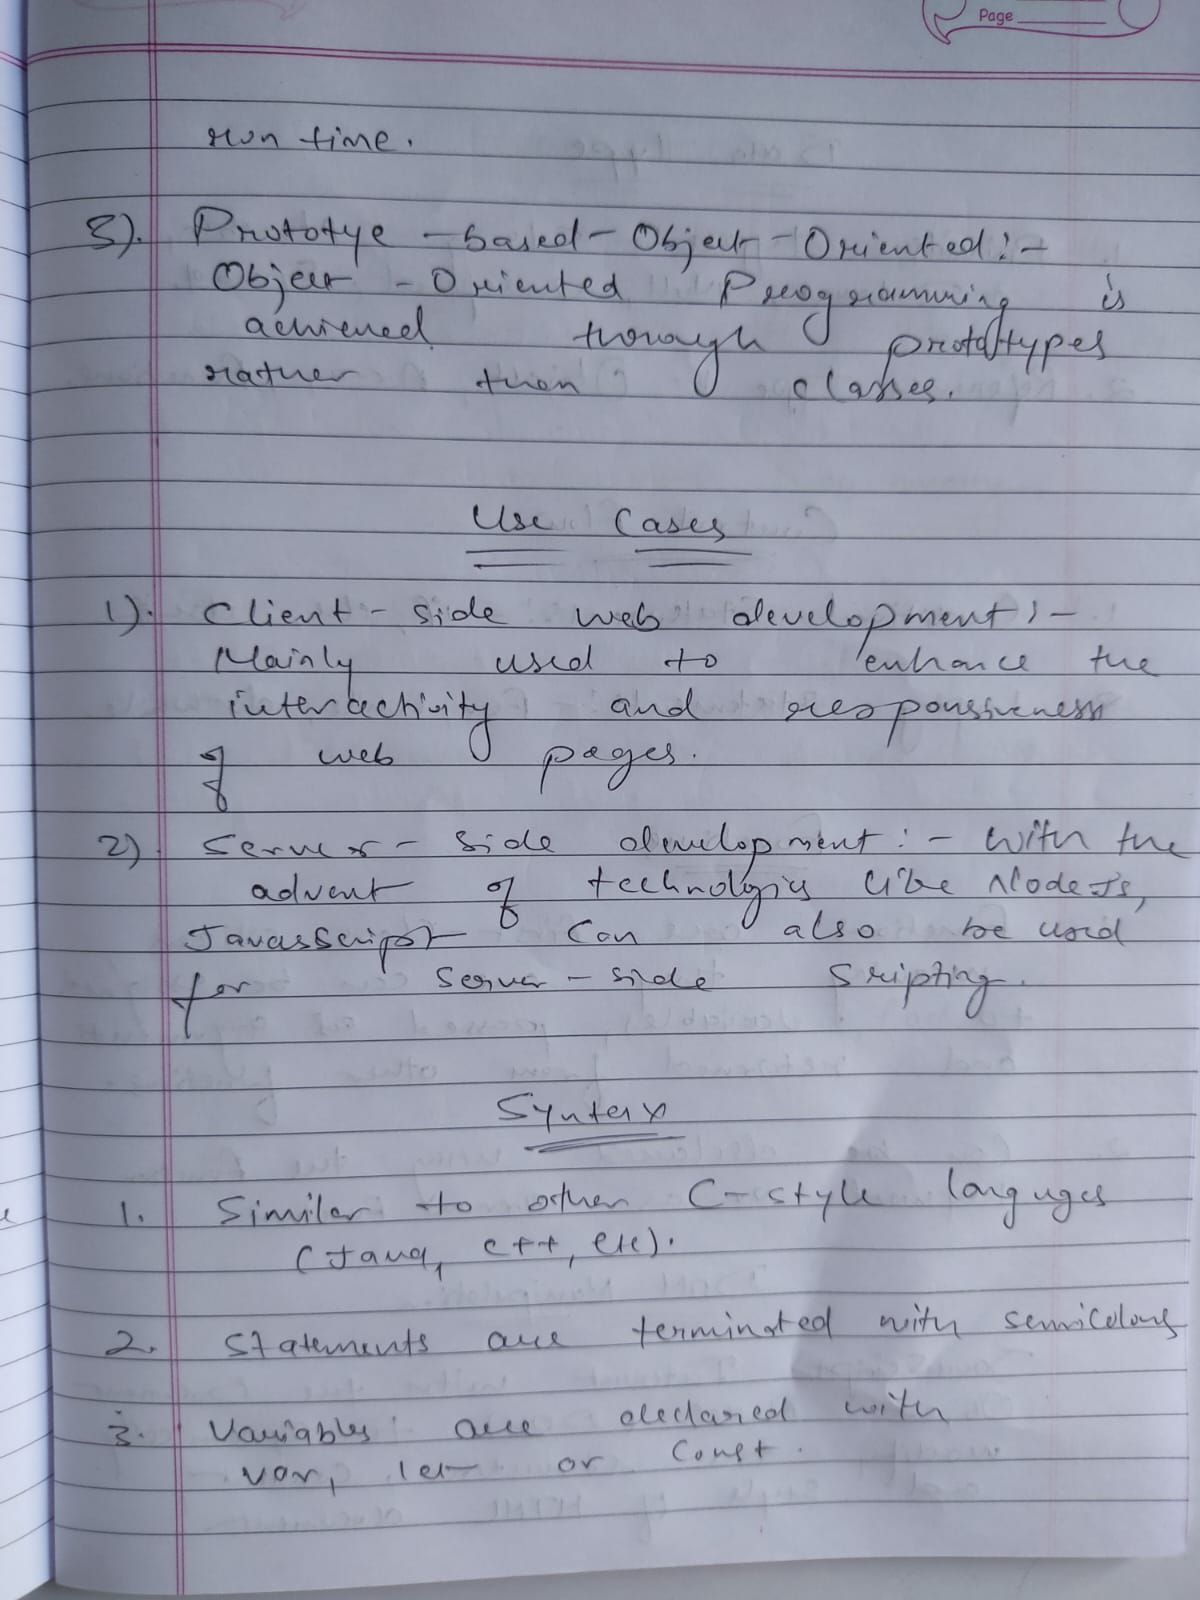 Page
run time.
3). Prototye - based - Object - Oriented :-
Object - Oriented Programming is
achieved through prototypes
rather then classes.
Use Cases
1). Client - side web development :-
Mainly used to enhance the
interactivity and responsiveness
of web pages.
2) Server - side development :- with the
advent of technologies like NodeJs,
JavasScript can also be used
for server - side sripting.
Synterx
1. Similar to other C-style languges
(Java, c++, etc).
2. Statements are terminated with semicolons
3. Variables are declared with
var, let or const.